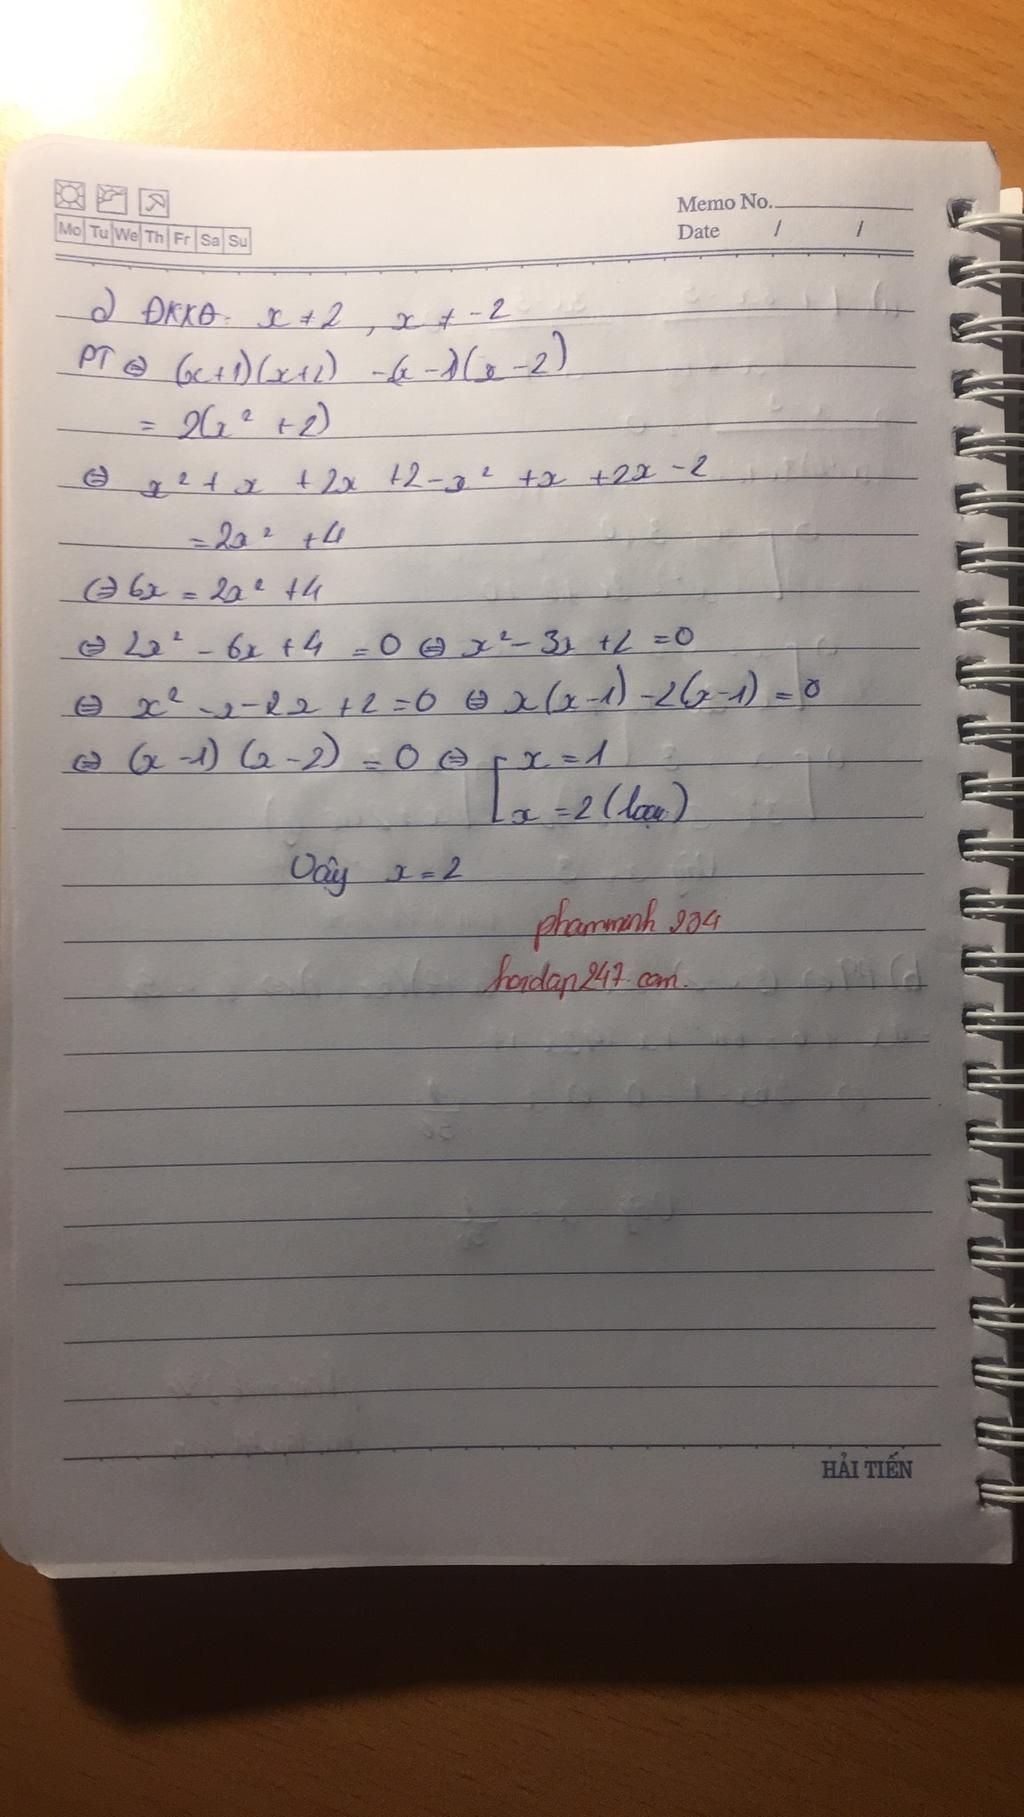 Memo No.
Mo Tu We Th Fr Sa Su
Date / /
d) ĐKXĐ: x ≠ 2, x ≠ -2
PT ⇔ (x+1)(x+2) -(x-1)(x-2)
= 2(x² + 2)
⇔ x² + x + 2x + 2 - x² + x + 2x - 2
= 2x² + 4
⇔ 6x = 2x² + 4
⇔ 2x² - 6x + 4 = 0 ⇔ x² - 3x + 2 = 0
⇔ x² - x - 2x + 2 = 0 ⇔ x(x-1) - 2(x-1) = 0
⇔ (x-1)(x-2) = 0 ⇔ [ x = 1
x = 2 (loại)
Vậy x = 2
phamminh 204
hoidap247.com.
HẢI TIẾN